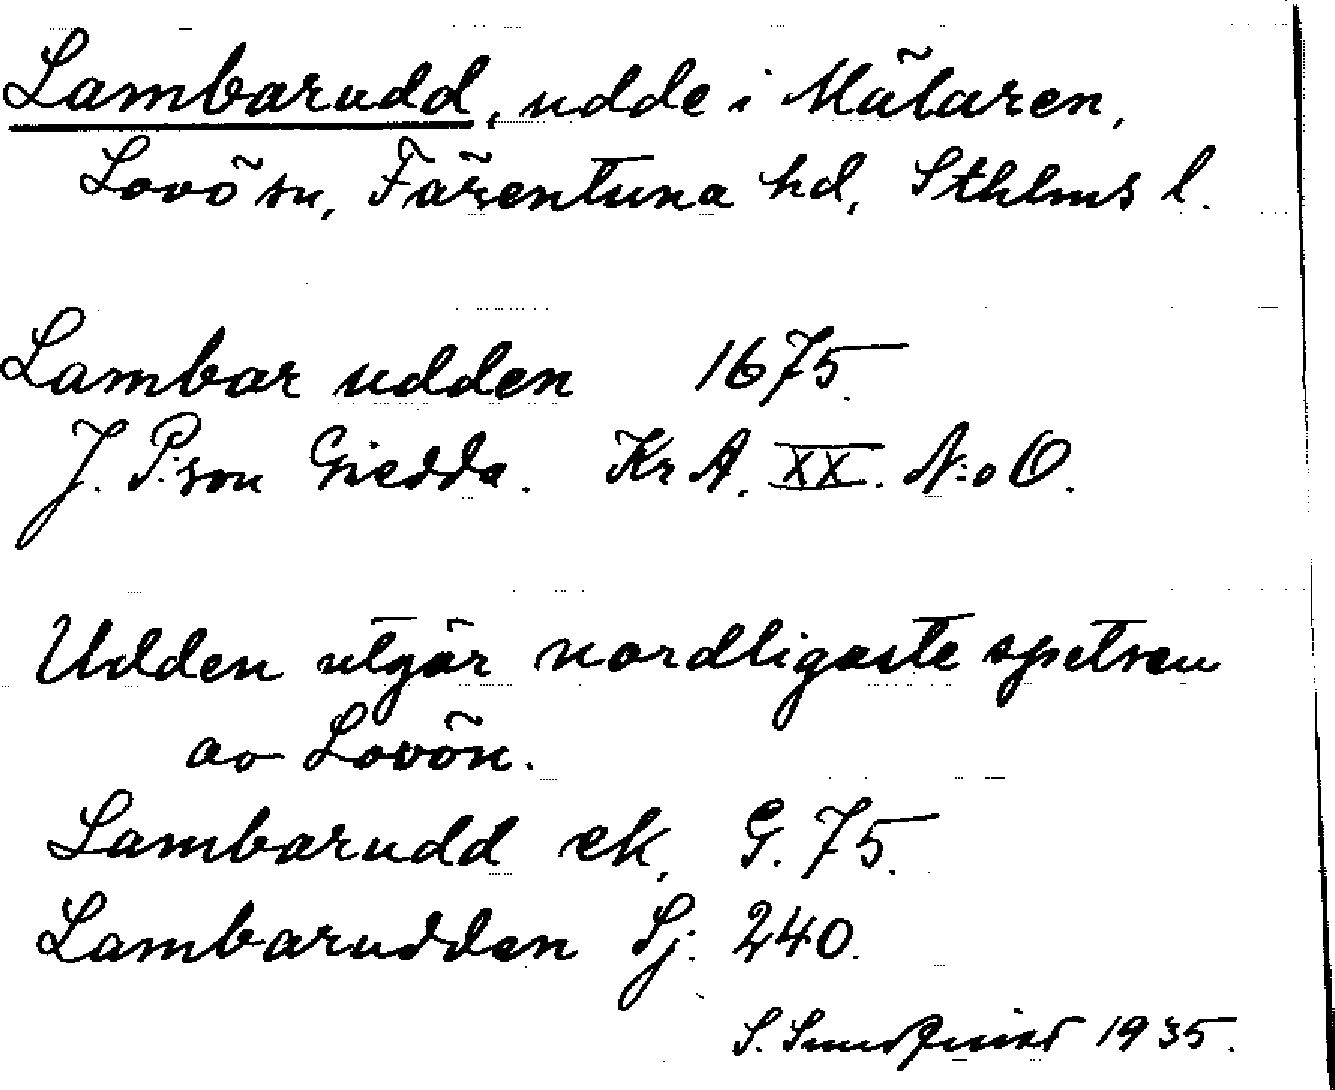 Lambarudd, udde i Mälaren,
Lovö sn, Färentuna hd, Sthlms l.
Lambar udden 1675.
J. P:son Giedda. Kr A. XX. N:o O.
Udden utgör nordligaste spetsen
av Lovön.
Lambarudd ek. G. 75.
Lambarudden Sj: 240.
S. Sundquist 1935.